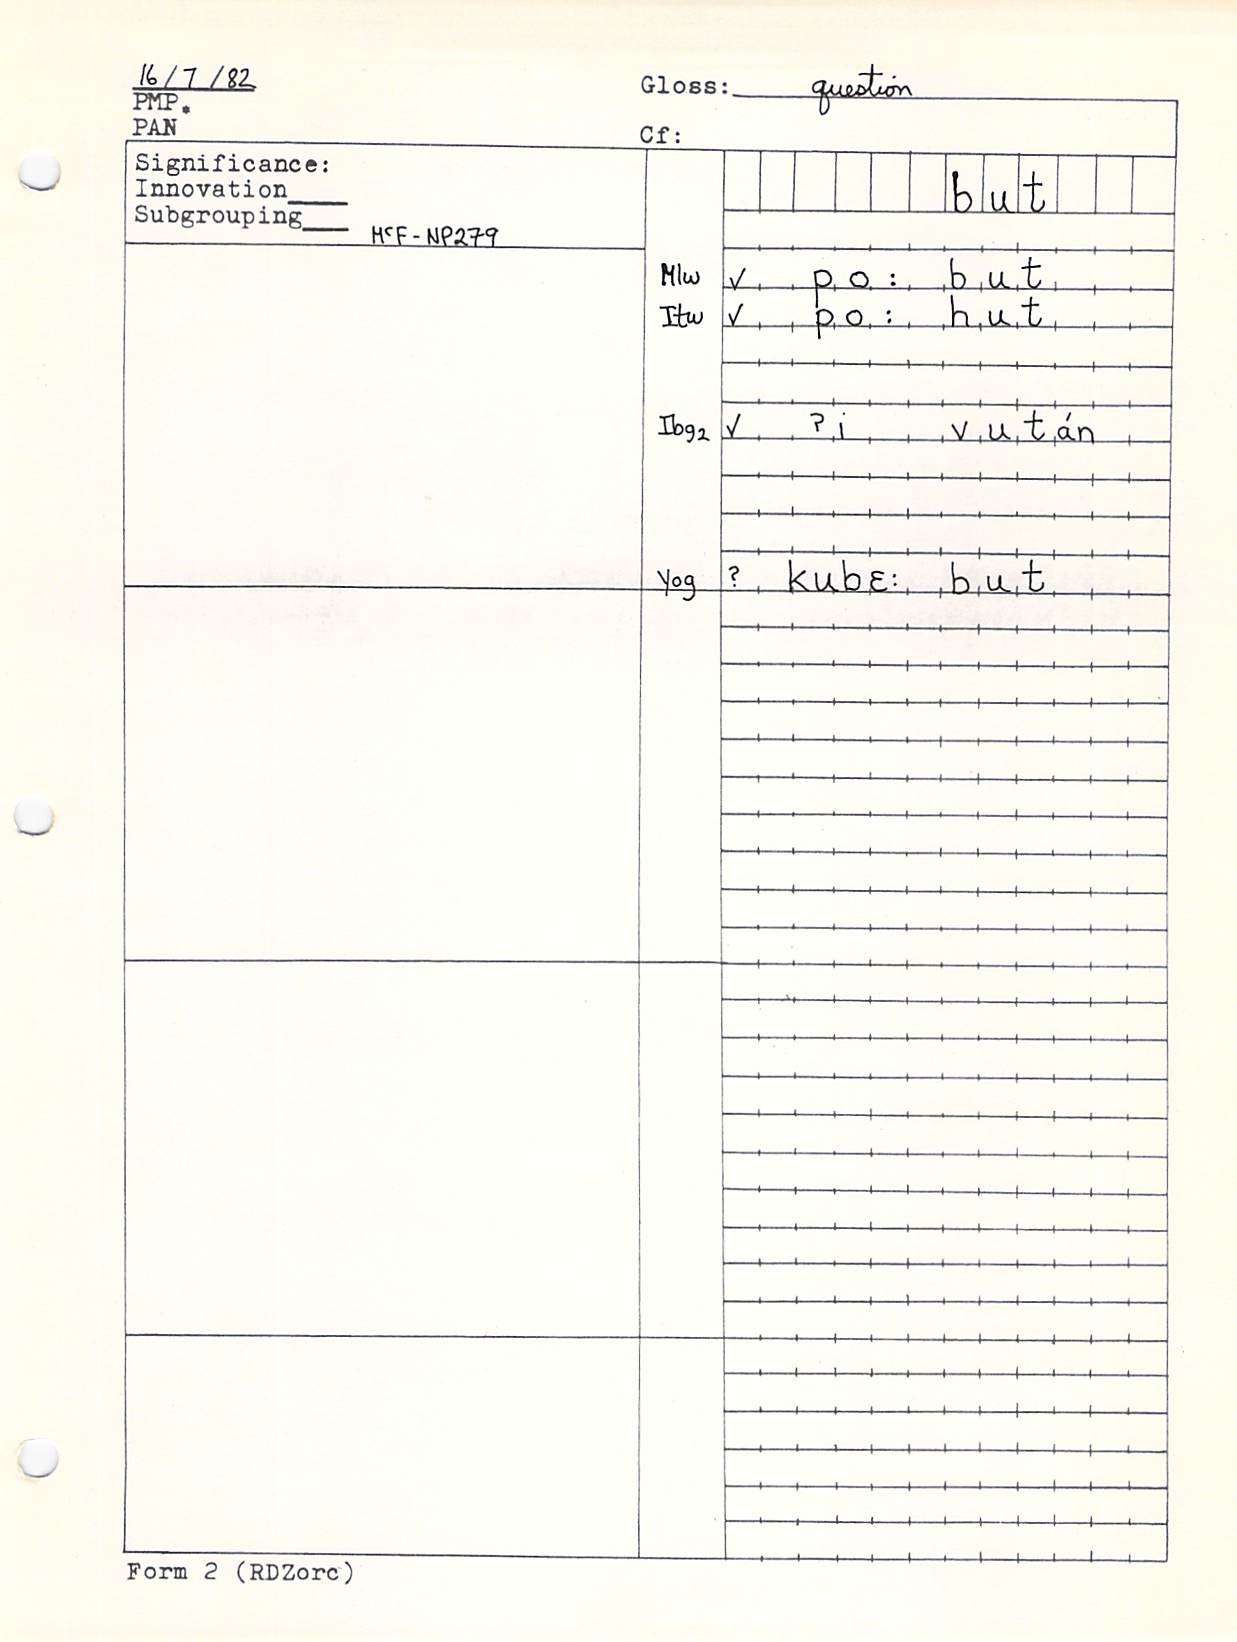 16/7/82
PMP*
PAN
Gloss: question
Cf:
Significance:
Innovation____
Subgrouping____
McF-NP279
but
Mlw ✓ po: but
Itw ✓ po: hut
Ibg2 ✓ ʔi vután
Yog ? kubɛ: but
Form 2 (RDZorc)